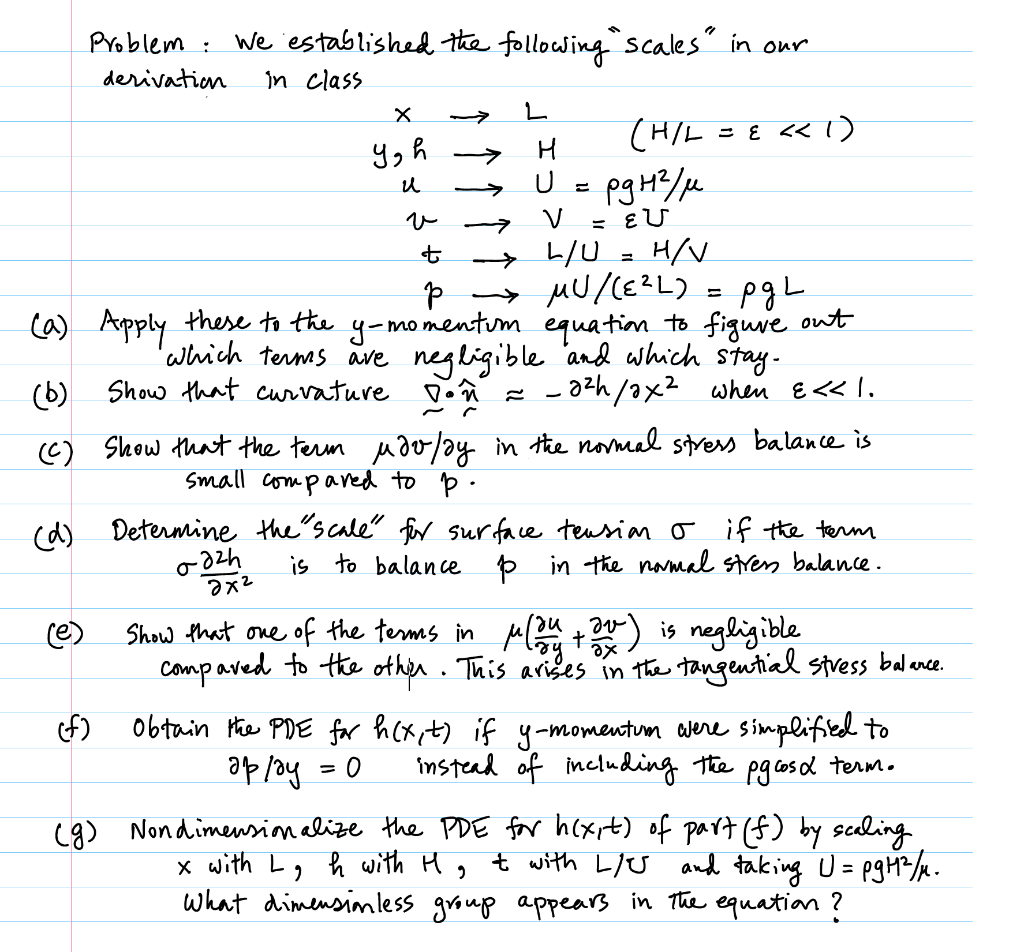 Problem : We established the following "scales" in our
derivation in class
x → L
(H/L = ε << 1)
y, h → H
u → U = ρgH²/μ
v → V = εU
t → L/U = H/V
p → μU/(ε²L) = ρgL
(a) Apply these to the y-momentum equation to figure out
which terms are negligible and which stay.
(b) Show that curvature ∇·n̂ ≈ -∂²h/∂x² when ε << 1.
(c) Show that the term μ∂v/∂y in the normal stress balance is
small compared to p.
(d) Determine the "scale" for surface tension σ if the term
σ ∂²h/∂x² is to balance p in the normal stress balance.
(e) Show that one of the terms in μ(∂u/∂y + ∂v/∂x) is negligible
compared to the other. This arises in the tangential stress balance.
(f) Obtain the PDE for h(x,t) if y-momentum were simplified to
∂p/∂y = 0 instead of including the ρg cosα term.
(g) Nondimensionalize the PDE for h(x,t) of part (f) by scaling
x with L, h with H, t with L/U and taking U = ρgH²/μ.
What dimensionless group appears in the equation?